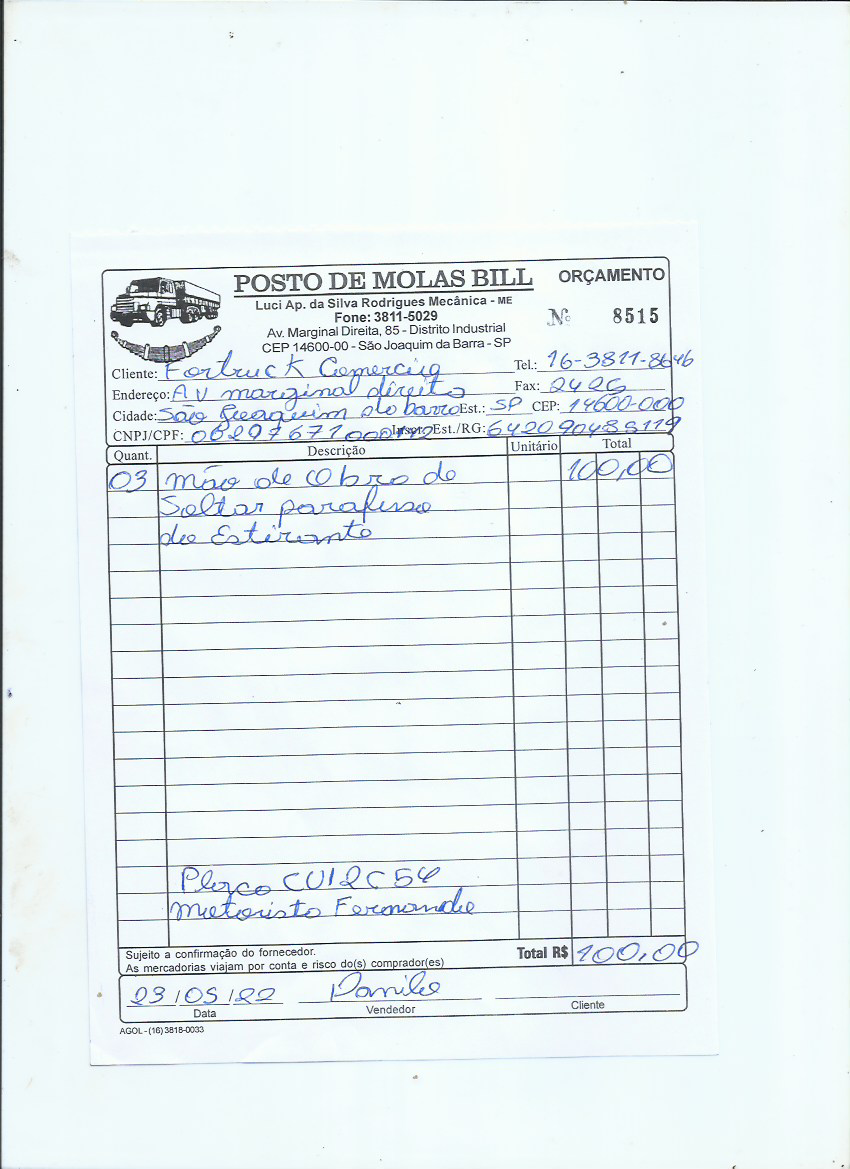 POSTO DE MOLAS BILL
ORÇAMENTO
Luci Ap. da Silva Rodrigues Mecânica - ME
Fone: 3811-5029
Nº 8515
Av. Marginal Direita, 85 - Distrito Industrial
CEP 14600-00 - São Joaquim da Barra - SP
Cliente: Fortruck Comercio Tel.: 16-3811-8646
Endereço: AV marginal direito Fax: 2426
Cidade: São Joaquim do barra Est.: SP CEP: 14600-000
CNPJ/CPF: Inscr. Est./RG: 642090488119
Quant. Descrição Unitário Total
03 mão de Obra de 100,00
Soltar parafuso
do Estirante
Placa CUI2C54
Motorista Fernando
Sujeito a confirmação do fornecedor.
As mercadorias viajam por conta e risco do(s) comprador(es)
Total R$ 100,00
23/05/22 Danilo
Data Vendedor Cliente
AGOL - (16) 3818-0033